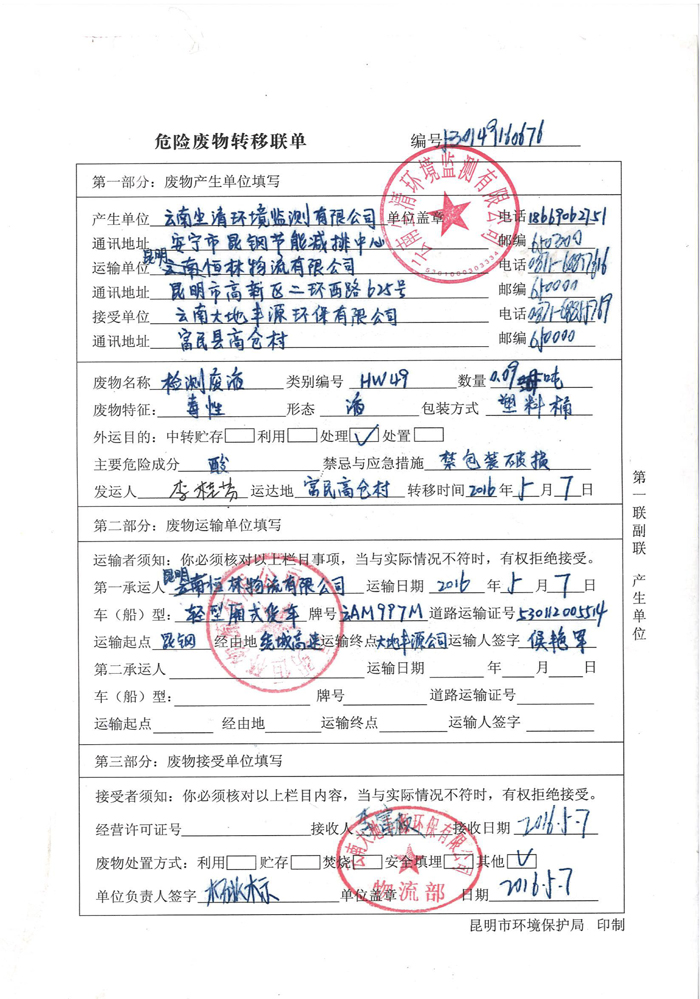 危险废物转移联单 编号
第一部分：废物产生单位填写
产生单位 云南尘清环境监测有限公司 单位盖章 电话
通讯地址 安宁市昆钢节能减排中心 邮编
运输单位 昆明云南恒林物流有限公司 电话
通讯地址 昆明市高新区二环西路625号 邮编 650000
接受单位 云南大地丰源环保有限公司 电话
通讯地址 富民县高仓村 邮编 650000
废物名称 检测废液 类别编号 HW49 数量 0.09 吨
废物特征：毒性 形态 液 包装方式 塑料桶
外运目的：中转贮存□ 利用□ 处理☑ 处置□
主要危险成分 酸 禁忌与应急措施 禁包装破损
发运人 李桂芬 运达地 富民高仓村 转移时间 2016年5月7日
第二部分：废物运输单位填写
运输者须知：你必须核对以上栏目事项，当与实际情况不符时，有权拒绝接受。
第一承运人 昆明云南恒林物流有限公司 运输日期 2016年5月7日
车（船）型：轻型厢式货车 牌号 AM997M 道路运输证号 530112005514
运输起点 昆钢 经由地 绕城高速 运输终点 大地丰源公司 运输人签字 侯艳
第二承运人 运输日期 年 月 日
车（船）型： 牌号 道路运输证号
运输起点 经由地 运输终点 运输人签字
第三部分：废物接受单位填写
接受者须知：你必须核对以上栏目内容，当与实际情况不符时，有权拒绝接受。
经营许可证号 接收人 接收日期 2016.5.7
废物处置方式：利用□ 贮存□ 焚烧□ 安全填埋□ 其他☑
单位负责人签字 单位盖章 日期 2016.5.7
昆明市环境保护局 印制
第一联副联 产生单位
清环境监测有限公司
5301000303334
云南大地丰源环保有限公司
物流部